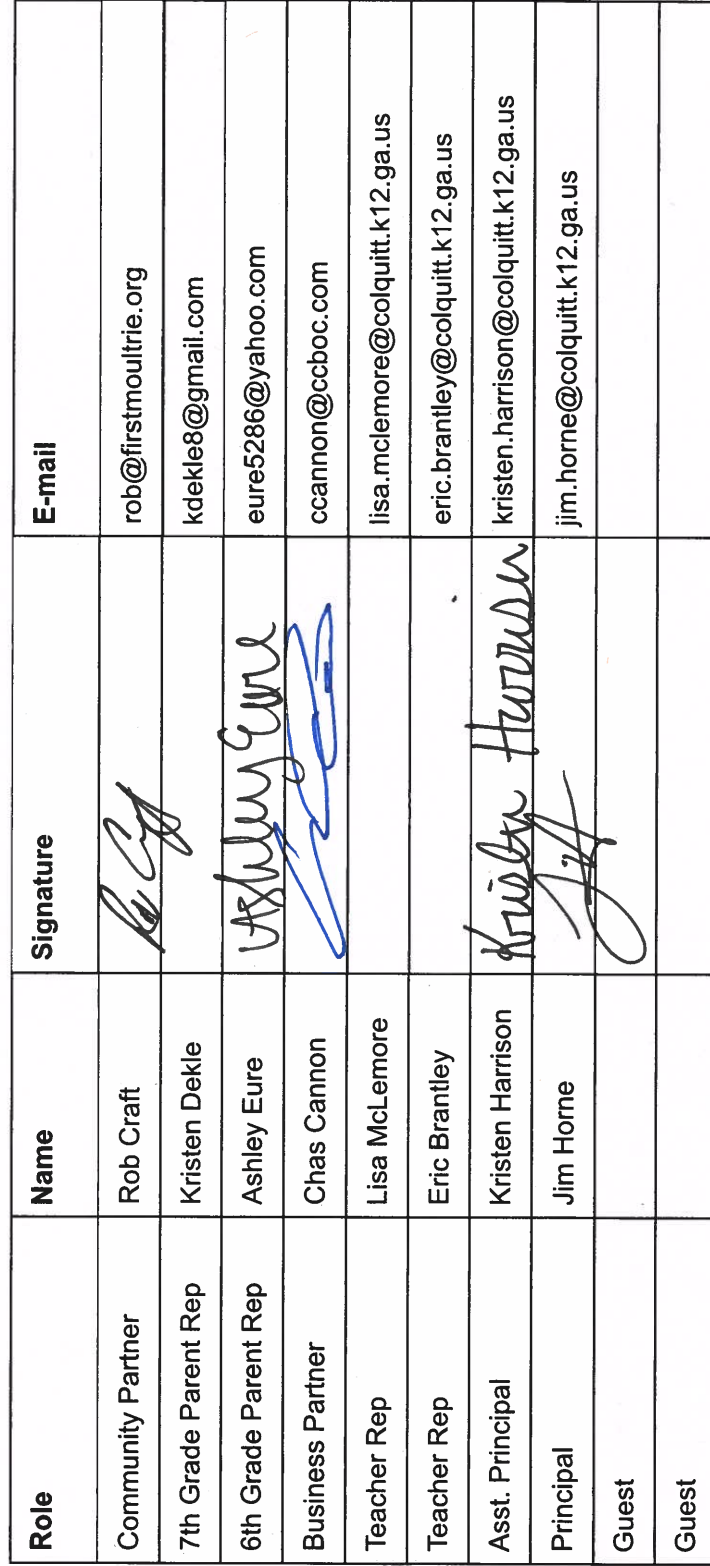 Role Name Signature E-mail
Community Partner Rob Craft Rob Craft rob@firstmoultrie.org
7th Grade Parent Rep Kristen Dekle kdekle8@gmail.com
6th Grade Parent Rep Ashley Eure Ashley Eure eure5286@yahoo.com
Business Partner Chas Cannon ccannon@ccboc.com
Teacher Rep Lisa McLemore lisa.mclemore@colquitt.k12.ga.us
Teacher Rep Eric Brantley eric.brantley@colquitt.k12.ga.us
Asst. Principal Kristen Harrison Kristen Harrison kristen.harrison@colquitt.k12.ga.us
Principal Jim Horne jim.horne@colquitt.k12.ga.us
Guest
Guest